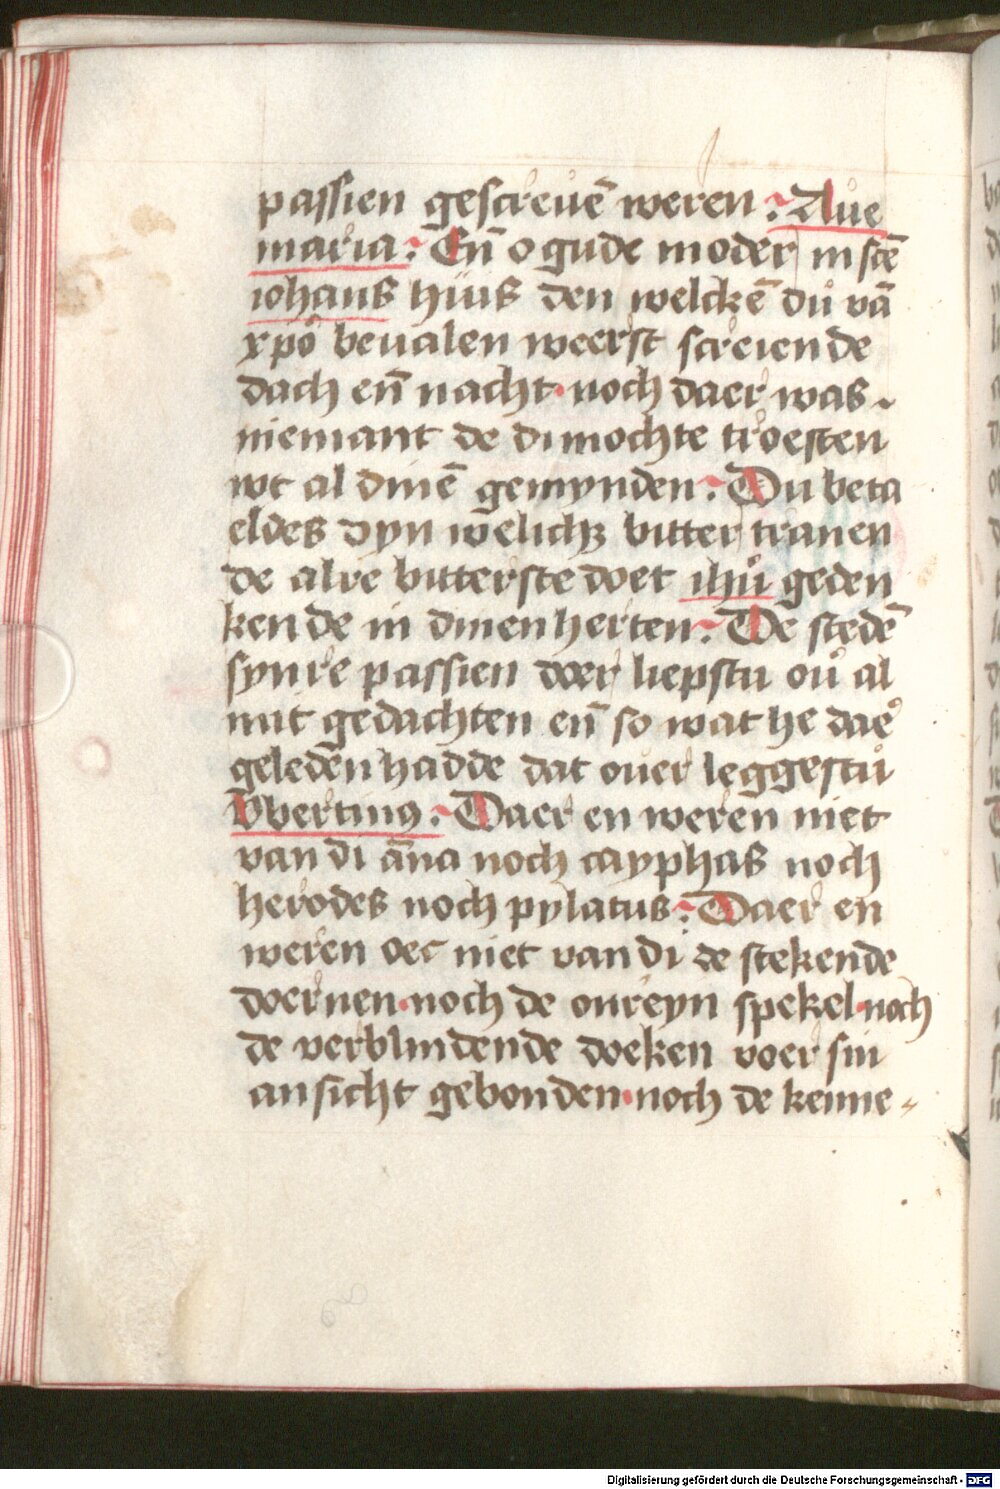 passien gescreuē weren. Aue
maria. Eñ o gude moder in scē
iohans huus den welckē du vā
xpō beualen weerst screiende
dach eñ nacht. noch daer was
niemant de di mochte troesten
wt al dinē gemynden. Du beta
eldes dyn welichz bitter tranen
de alre bitterste doet ihū geden
kende in dinen herten. De stedē
synre passien doer liepstu ou al
mit gedachten eñ so wat he daer
geleden hadde dat ouer leggestu
Vbertinꝰ. Daer en weren niet
van di āna noch cayphas noch
herodes noch pylatus. Daer en
weren oec niet van di de stekende
doernen. noch de onreyn spekel. noch
de verblindende doeken voer sin
ansicht gebonden. noch de kenne⸗
Digitalisierung gefördert durch die Deutsche Forschungsgemeinschaft - DFG